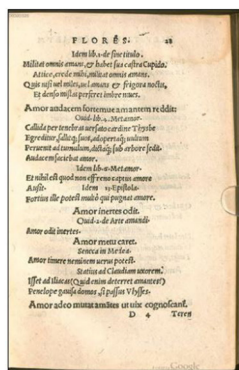 FLORES. 28
Idem lib.1.de sine titulo.
Militat omnis amans, & habet sua castra Cupido.
Attice, crede mihi, militat omnis amans.
Quis nisi vel miles, vel amans & frigora noctis,
Et denso mistas perferet imbre niues.
Amor audacem fortemue amantem reddit:
Ouid. lib.4. Metamor.
Callida per tenebras versato cardine Thysbe
Egreditur, fallitq; suos, adopertaq; vultum
Peruenit ad tumulum, dictaq; sub arbore sedit.
Audacem faciebat amor.
Idem lib. Metamor.
Et nihil est quod non effreno captus amore
Ausit. Idem Epistola.
Fortius ille potest multò qui pugnat amore.
Amor inertes odit.
Ouid.2.de Arte amandi.
Amor odit inertes.
Amor metu caret.
Seneca in Medea.
Amor timere neminem verus potest.
Statius ad Claudiam vxorem.
Isset ad Iliacas (Quid enim deterret amantes?)
Penelope gauisa domos, si passus Vlysses.
Amor adeo mutat amātes ut uix cognoscant.
D 4 Teren
Google